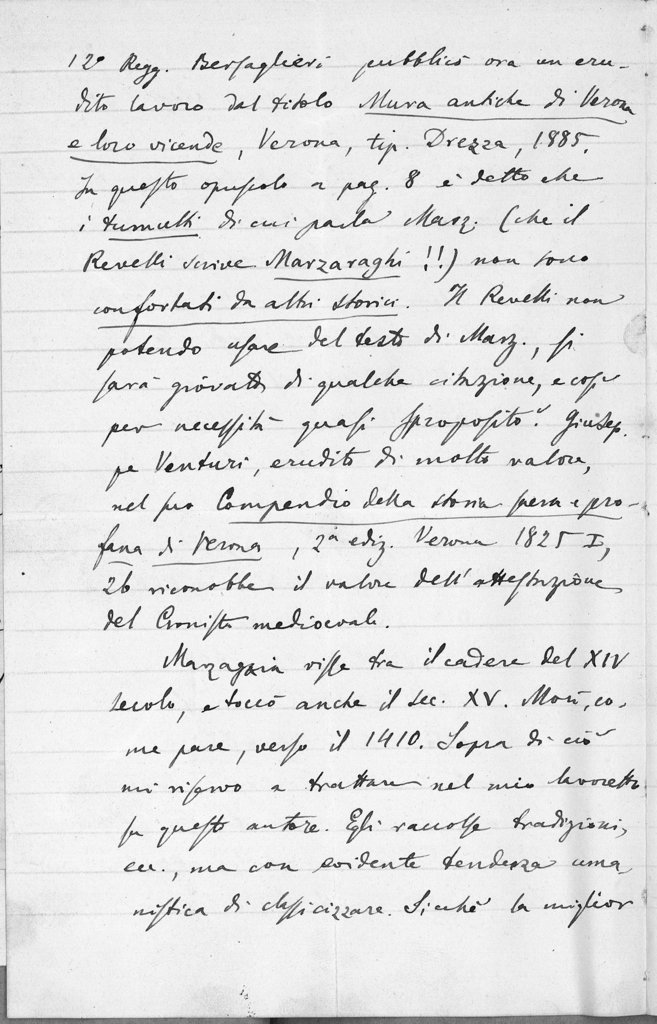 12° Regg. Bersaglieri pubblicò ora un eru-
dito lavoro dal titolo Mura antiche di Verona
e loro vicende, Verona, tip. Drezza, 1885.
In questo opuscolo a pag. 8 è detto che
i tumulti di cui parla Marz. (che il
Revelli scrive Marzaraghi !!) non sono
confortati da altri storici. Il Revelli non
potendo usare del testo di Marz., si
sarà giovato di qualche citazione, e così
per necessità quasi spropositò. Giusep-
pe Venturi, erudito di molto valore,
nel suo Compendio della storia sacra e pro-
fana di Verona, 2ª ediz. Verona 1825 I,
26 riconobbe il valore dell'attestazione
del Cronista medioevale.
Marzagaia visse tra il cadere del XIV
secolo, e toccò anche il sec. XV. Morì, co-
me pare, verso il 1410. Sopra di ciò
mi riservo a trattare nel mio lavoretto
su questo autore. Egli raccolse tradizioni,
ecc., ma con evidente tendenza uma-
nistica di classicizzare. Sicché la miglior